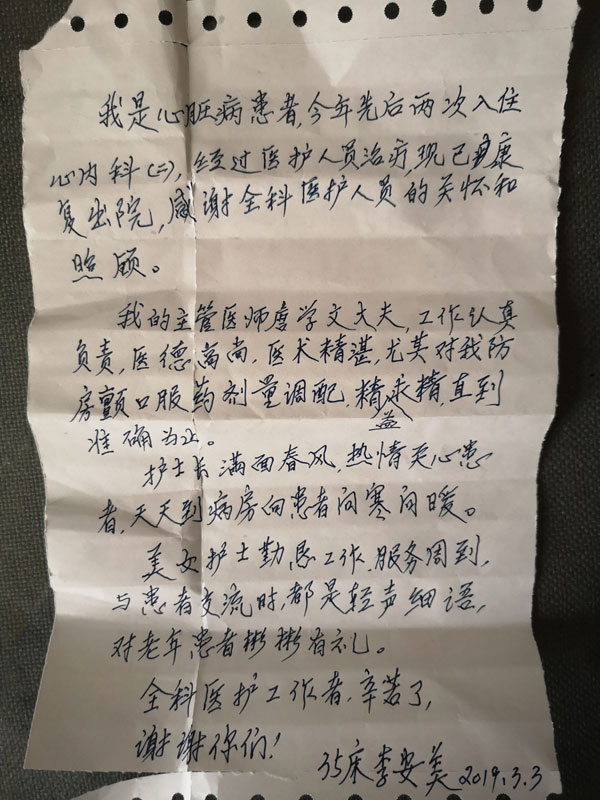 我是心脏病患者,今年先后两次入住
心内科(二),经过医护人员治疗,现已康
复出院,感谢全科医护人员的关怀和
照顾。
我的主管医师詹学文大夫,工作认真
负责,医德高尚,医术精湛,尤其对我防
房颤口服药剂量调配,精益求精,直到
准确为止。
护士长满面春风,热情关心患
者,天天到病房向患者问寒问暖。
美女护士勤恳工作,服务周到,
与患者交流时,都是轻声细语,
对老年患者彬彬有礼。
全科医护工作者,辛苦了,
谢谢你们!
35床李安美2019.3.3